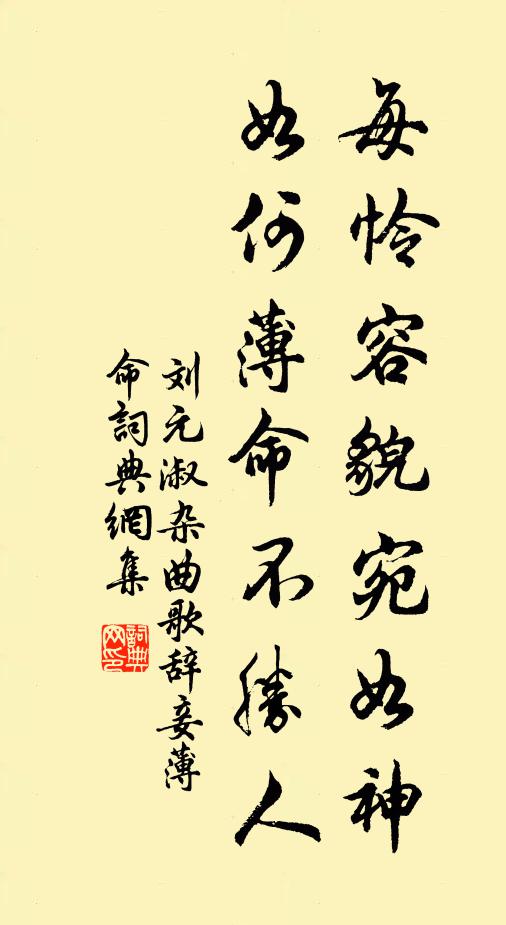 每怜容貌宛如神
如何薄命不勝人
刘元淑杂曲歌辞妾薄
命詞典網集
詞典网印